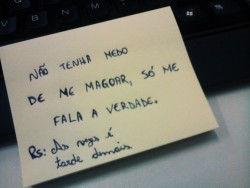 NÃO TENHA MEDO
DE ME MAGOAR, SÓ ME
FALA A VERDADE.
Rs: As vezes é
tarde demais